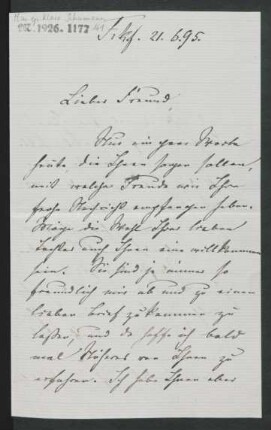 Frkf. 21.6.95.
Lieber Freund,
Nur ein paar Worte
heute, die Ihnen sagen sollen,
mit welcher Freude wir Ihre
frohe Nachricht empfangen haben.
Möge die Wahl Ihrer lieben
Tochter auch Ihnen eine willkommene
sein. Sie sind ja immer so
freundlich mir ab und zu einen
lieben Brief zukommen zu
lassen, und da hoffe ich bald
mal Näheres von Ihnen zu
erfahren. Ich habe Ihnen aber
1926. 1177